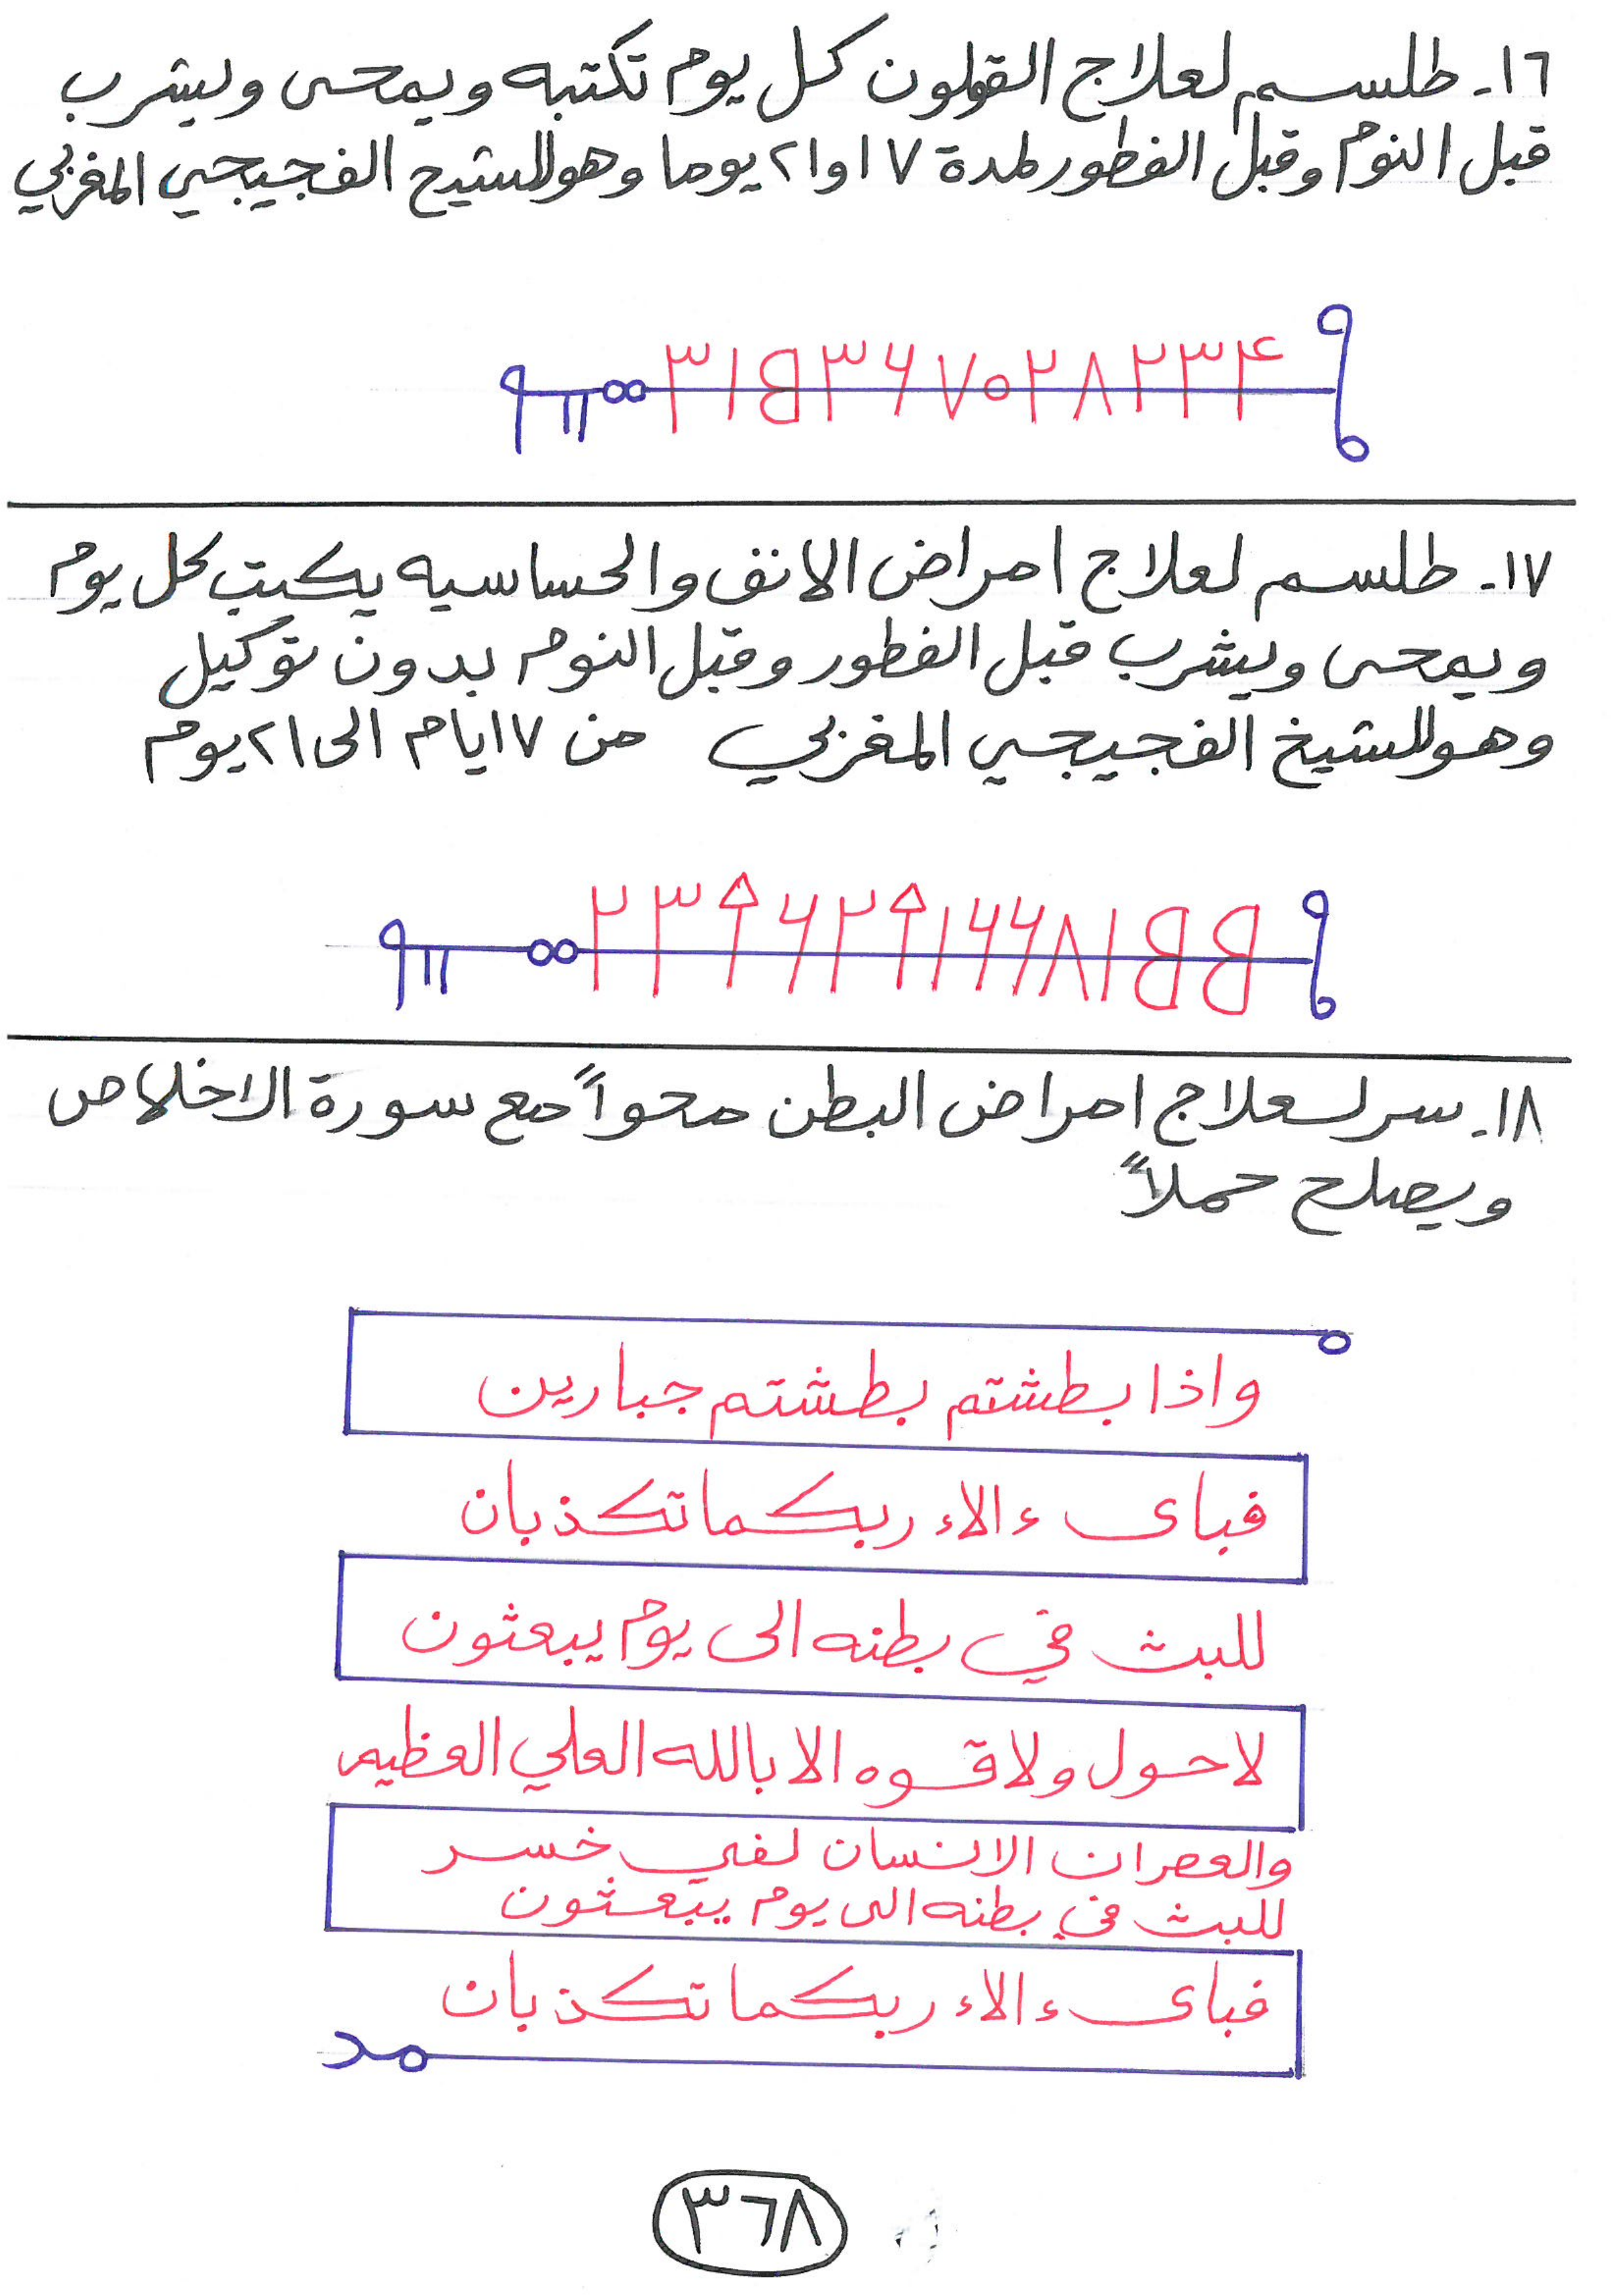 ١٦- طلسم لعلاج القولون كل يوم تكتبه ويمحى ويشرب
قبل النوم وقبل الفطور لمدة ١٧ او ٢١ يوما وهو للشيخ الفجيجي المغربي
١٧- طلسم لعلاج امراض الانف والحساسيه يكتب كل يوم
ويمحى ويشرب قبل الفطور وقبل النوم بدون توكيل
وهو للشيخ الفجيجي المغربي من ١٧ ايام الى ٢١ يوم
١٨- سر لعلاج امراض البطن محواً مع سورة الاخلاص
ويصلح حملاً
واذا بطشتم بطشتم جبارين
فباى ءالاء ربكما تكذبان
للبث في بطنه الى يوم يبعثون
لا حول ولا قوه الا بالله العلي العظيم
والعصر ان الانسان لفي خسر
للبث في بطنه الى يوم يبعثون
فباى ءالاء ربكما تكذبان
٣٦٨